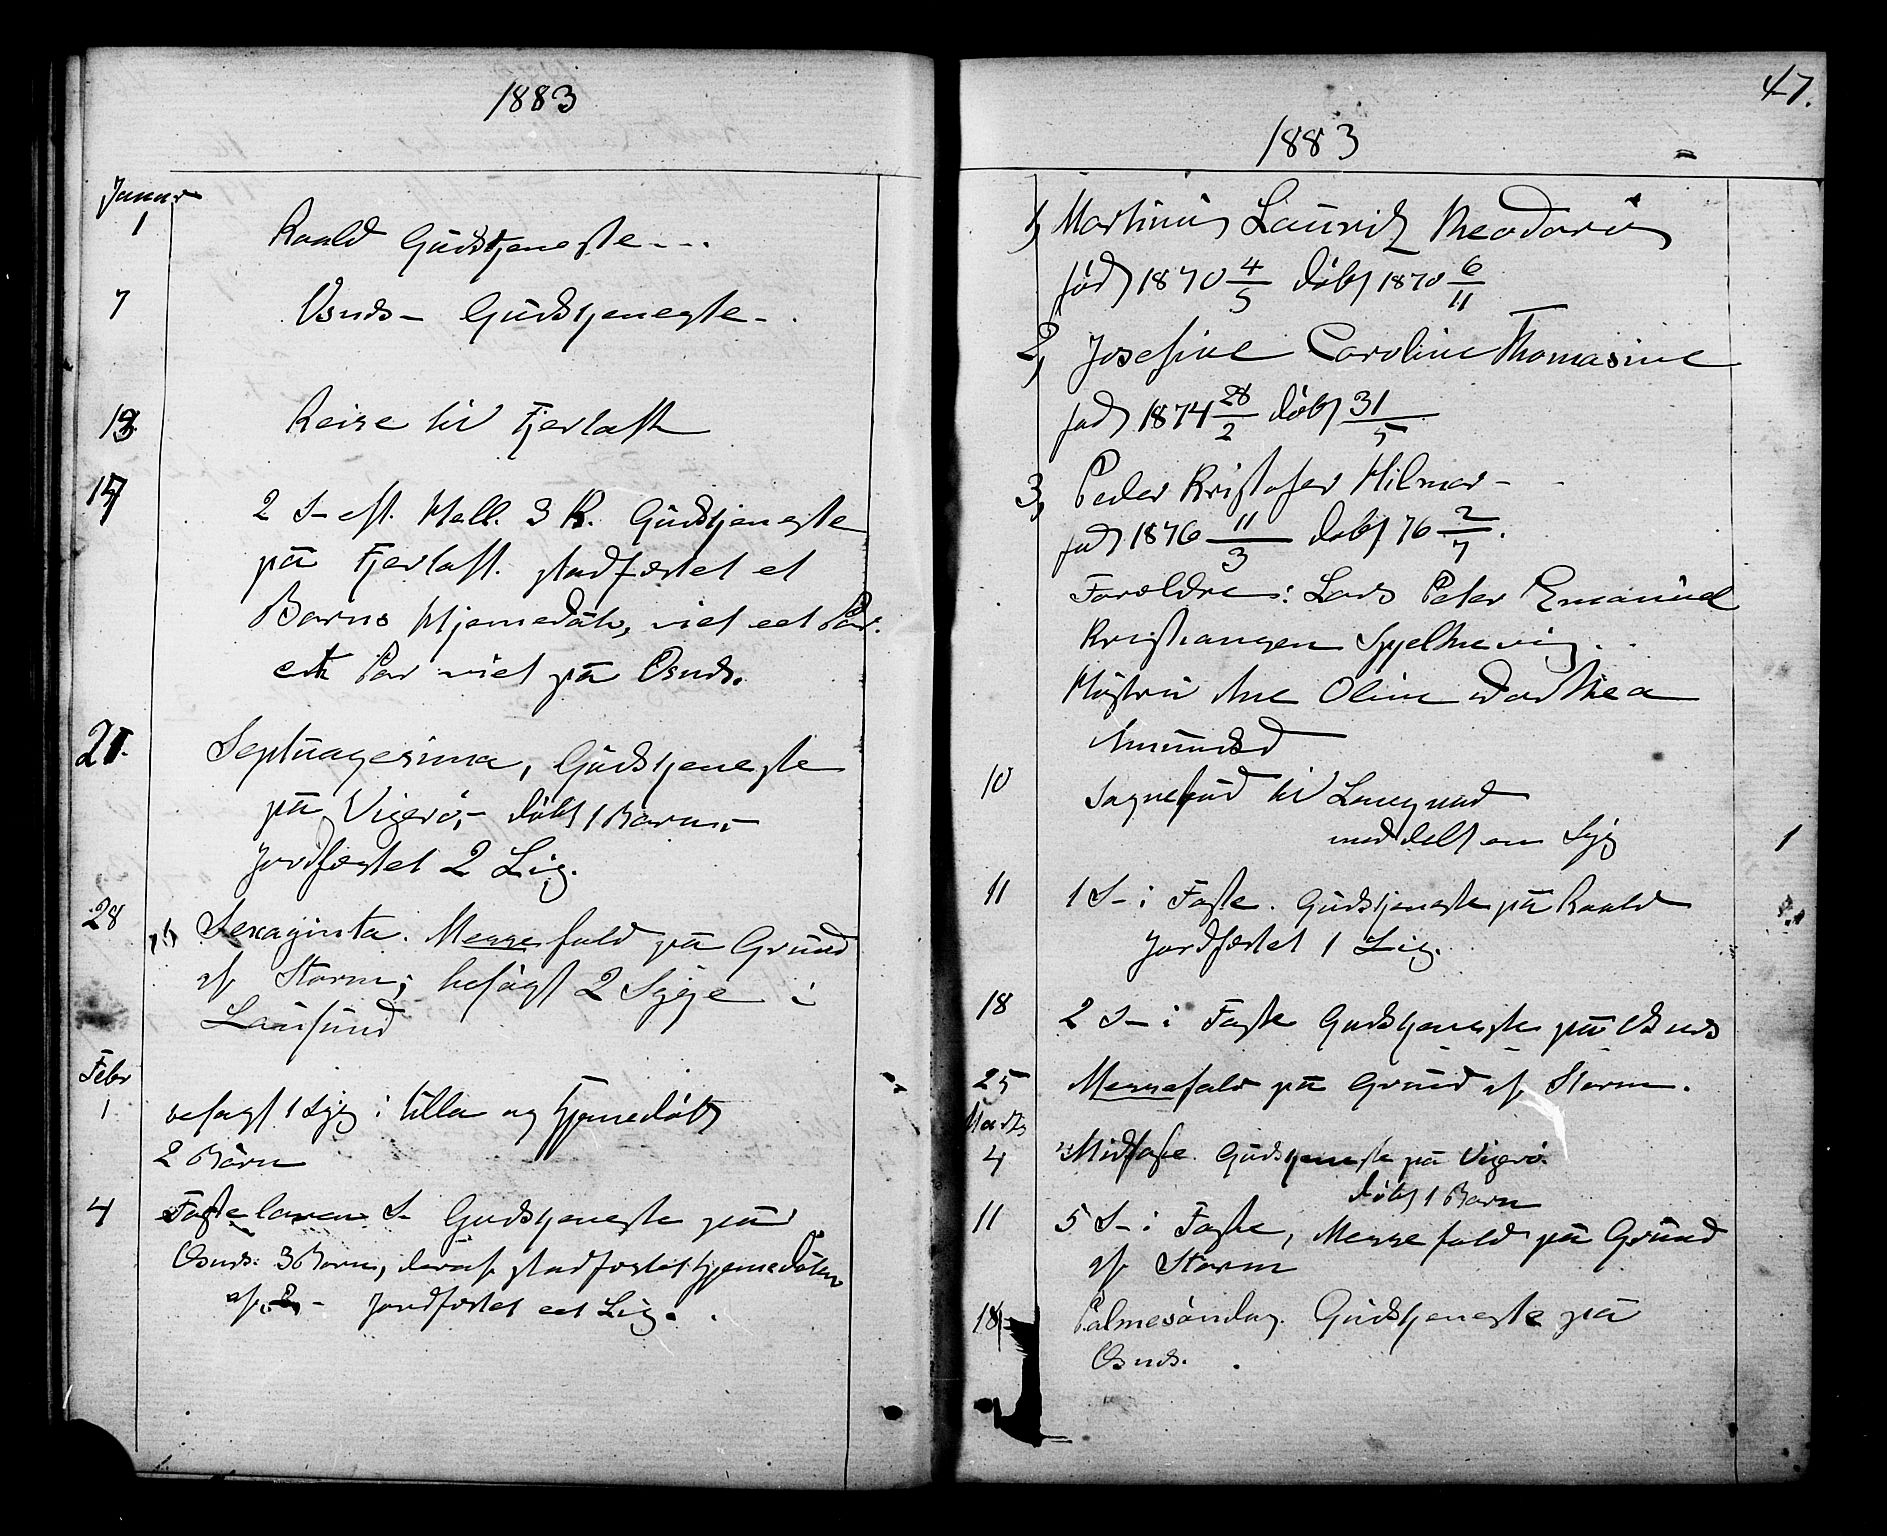 1883
Januar
1 Roald Gudstjeneste
7 Osnds- Gudstjeneste-
13 Reise til Fjertoft
14 2 S- eft. Hell. 3 K. Gudstjeneste
på Fjertoft. stadfæstet et
Barns Hjemedåb, viet eet Par.
et Par viet på Osnds.
21. Septuagesima, Gudstjeneste
på Vigerö,- döbt 1 Barn,-
Jordfæstet 2 Lig.
28 Sexaginta. Messefald på Grund
af Storm; besögt 2 Syge i
Lausund
Febr
1 besögt 1 Syg i Ulla og hjemedöbt
2 Börn
4 Fastelavens S- Gudstjeneste på
Osnds: 3 Börn, deraf stadfæstet Hjemedåben
af 2 - Jordfæstet eet Lig.
47.
1883
1, Martinus Lauritz Theodorus
född 1870 4/5 döbt 1870 6/11
2, Josefine Caroline Thomasine
född 1874 28/2 döbt 31/5
3, Peder Kristofer Hilmar-
född 1876 11/3 döbt 76 2/7.
Forældre: Lars Peter Emanuel
Kristiansen
Hustru Ane Oline Dorthea
Amunds
10 Sognebud til Longvad
meddelt en Syg 1
11 1 S- i Faste. Gudstjeneste på Roald
Jordfæstet 1 Lig.
18 2 S- i Faste Gudstjeneste på Osnds
25 Messefald på Grund af Storm.
Marts
4 Midfaste. Gudstjeneste på Vigerö.
döbt 1 Barn
11 5 S- i Faste, Messefald på Grund
af Storm
18 Palmesöndag. Gudstjeneste på
Osnds.